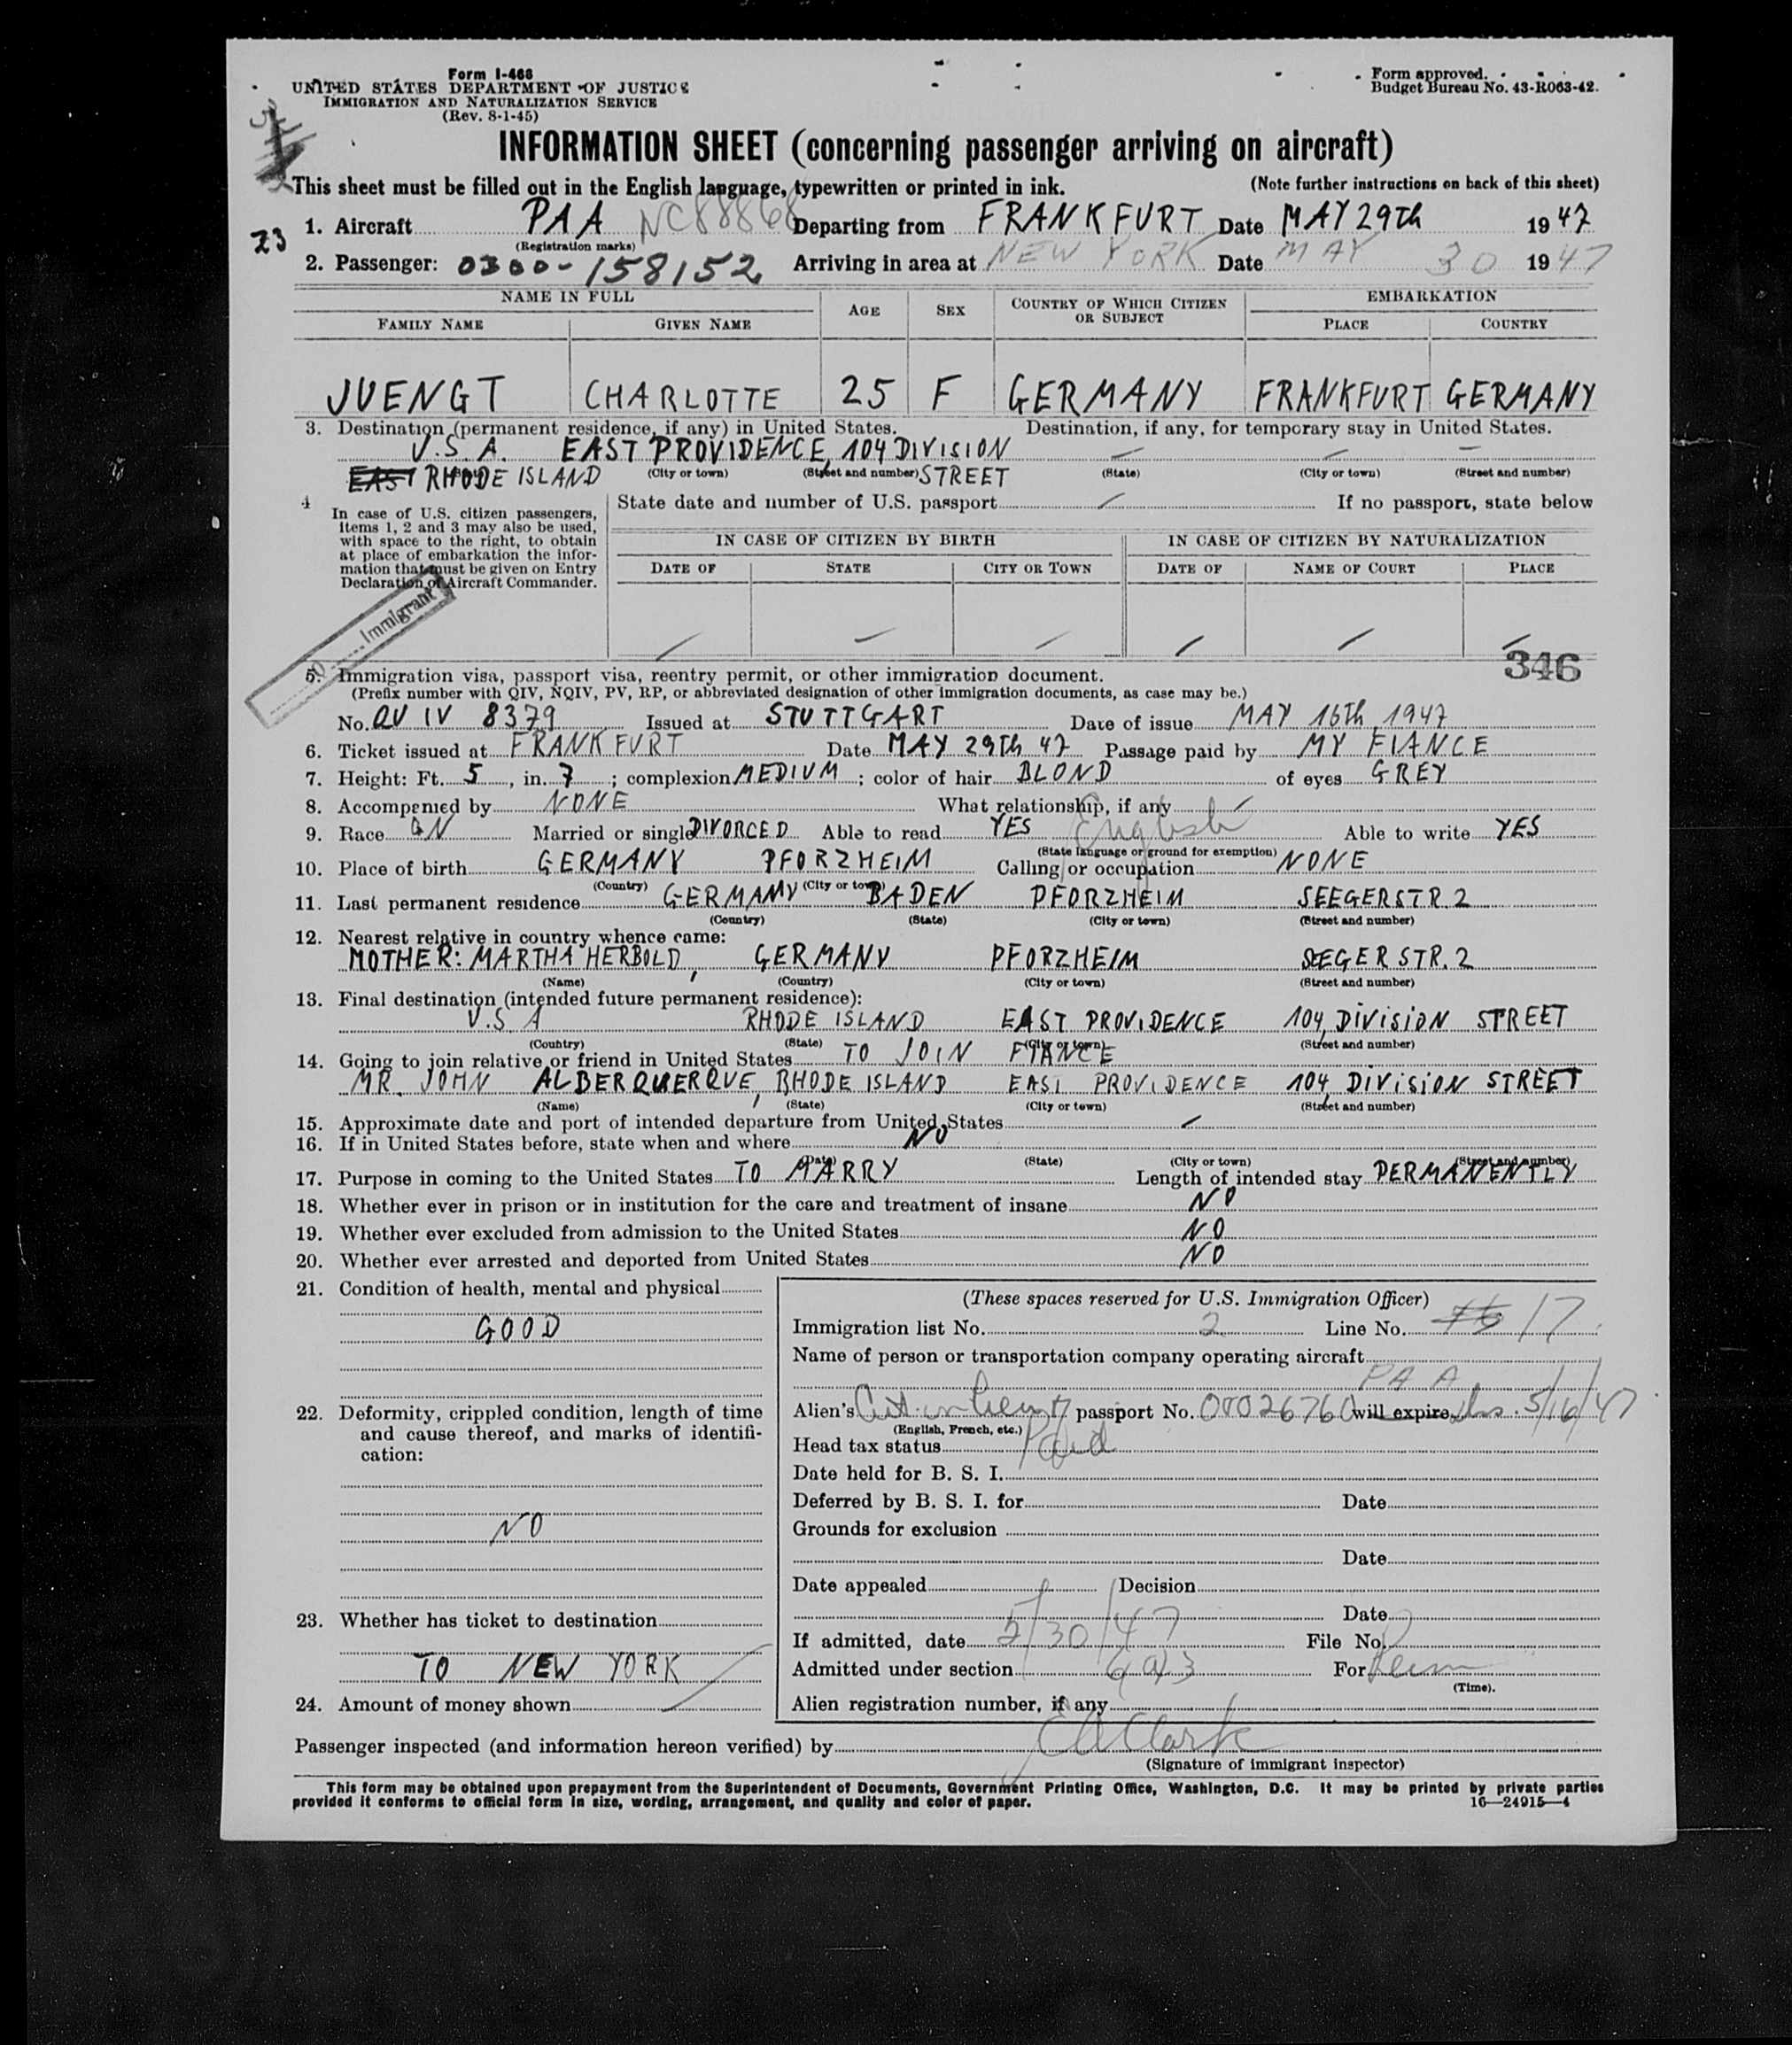 Form I-466
UNITED STATES DEPARTMENT OF JUSTICE
IMMIGRATION AND NATURALIZATION SERVICE
(Rev. 8-1-45)
Form approved.
Budget Bureau No. 43-R063-42.
INFORMATION SHEET (concerning passenger arriving on aircraft)
This sheet must be filled out in the English language, typewritten or printed in ink. (Note further instructions on back of this sheet)
23
1. Aircraft PAA NC88868 Departing from FRANKFURT Date MAY 29th 1947
(Registration marks)
2. Passenger: 0300-158152 Arriving in area at NEW YORK Date MAY 30 1947
NAME IN FULL AGE SEX COUNTRY OF WHICH CITIZEN OR SUBJECT EMBARKATION
FAMILY NAME GIVEN NAME PLACE COUNTRY
JUENGT CHARLOTTE 25 F GERMANY FRANKFURT GERMANY
3. Destination (permanent residence, if any) in United States. Destination, if any, for temporary stay in United States.
U.S.A. EAST PROVIDENCE, 104 DIVISION — — —
EAST RHODE ISLAND (City or town) (Street and number) STREET (State) (City or town) (Street and number)
4 In case of U.S. citizen passengers, items 1, 2 and 3 may also be used, with space to the right, to obtain at place of embarkation the information that must be given on Entry Declaration of Aircraft Commander.
State date and number of U.S. passport If no passport, state below
IN CASE OF CITIZEN BY BIRTH IN CASE OF CITIZEN BY NATURALIZATION
DATE OF STATE CITY OR TOWN DATE OF NAME OF COURT PLACE
Immigrant
346
5. Immigration visa, passport visa, reentry permit, or other immigration document.
(Prefix number with QIV, NQIV, PV, RP, or abbreviated designation of other immigration documents, as case may be.)
No. QU IV 8379 Issued at STUTTGART Date of issue MAY 16th 1947
6. Ticket issued at FRANKFURT Date MAY 29th 47 Passage paid by MY FIANCE
7. Height: Ft. 5, in. 7; complexion MEDIUM; color of hair BLOND of eyes GREY
8. Accompanied by NONE What relationship, if any
9. Race GN Married or single DIVORCED Able to read YES English Able to write YES
(State language or ground for exemption)
10. Place of birth GERMANY PFORZHEIM Calling or occupation NONE
(Country) (City or town)
11. Last permanent residence GERMANY BADEN PFORZHEIM SEEGERSTR. 2
(Country) (State) (City or town) (Street and number)
12. Nearest relative in country whence came:
MOTHER: MARTHA HERBOLD, GERMANY PFORZHEIM SEEGERSTR. 2
(Name) (Country) (City or town) (Street and number)
13. Final destination (intended future permanent residence):
U.S.A RHODE ISLAND EAST PROVIDENCE 104, DIVISION STREET
(Country) (State) (City or town) (Street and number)
14. Going to join relative or friend in United States TO JOIN FIANCE
MR. JOHN ALBERQUERQUE, RHODE ISLAND EAST PROVIDENCE 104, DIVISION STREET
(Name) (State) (City or town) (Street and number)
15. Approximate date and port of intended departure from United States
16. If in United States before, state when and where NO
(Date) (State) (City or town) (Street and number)
17. Purpose in coming to the United States TO MARRY Length of intended stay PERMANENTLY
18. Whether ever in prison or in institution for the care and treatment of insane NO
19. Whether ever excluded from admission to the United States NO
20. Whether ever arrested and deported from United States NO
21. Condition of health, mental and physical
GOOD
22. Deformity, crippled condition, length of time and cause thereof, and marks of identification:
NO
23. Whether has ticket to destination
TO NEW YORK
24. Amount of money shown
(These spaces reserved for U.S. Immigration Officer)
Immigration list No. 2 Line No. 17
Name of person or transportation company operating aircraft
PAA
Alien's passport No. 0002676 will expire 5/16/47
(English, French, etc.)
Head tax status Paid
Date held for B. S. I.
Deferred by B. S. I. for Date
Grounds for exclusion
Date
Date appealed Decision
Date
If admitted, date 5/30/47 File No.
Admitted under section 6a3 For Perm
(Time).
Alien registration number, if any
Passenger inspected (and information hereon verified) by Clark
(Signature of immigrant inspector)
This form may be obtained upon prepayment from the Superintendent of Documents, Government Printing Office, Washington, D.C. It may be printed by private parties
provided it conforms to official form in size, wording, arrangement, and quality and color of paper. 16—24915-4